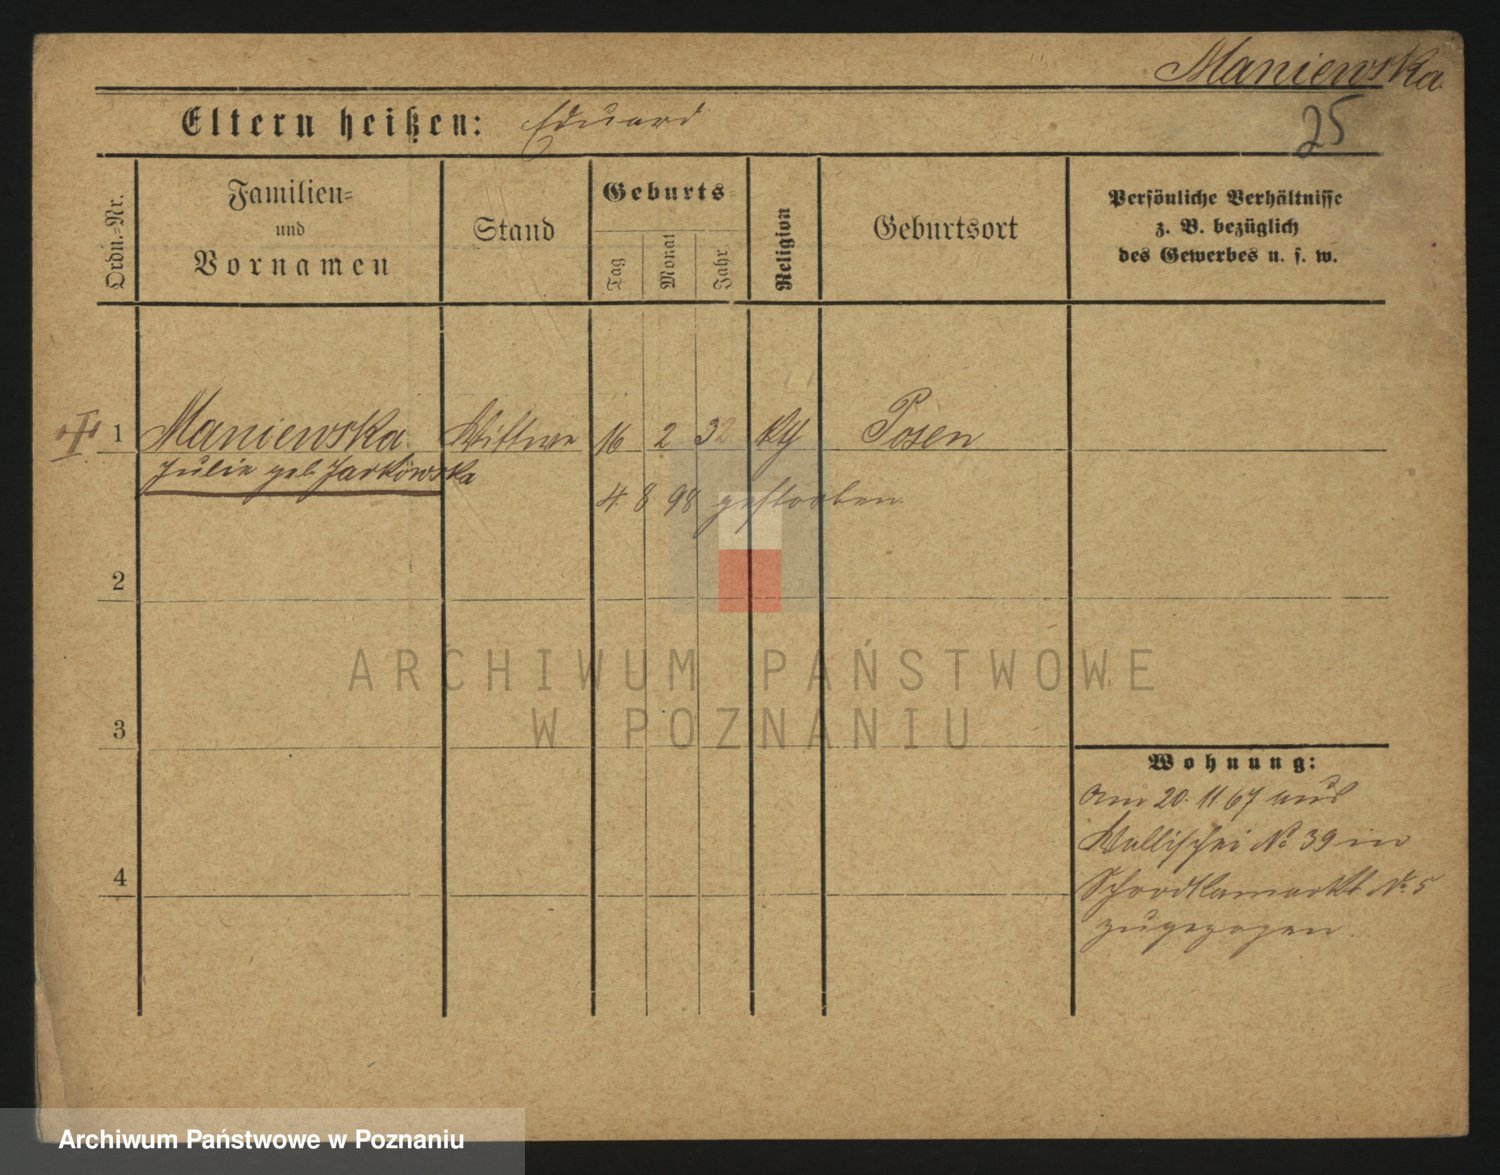 Maniewska
25
Eltern heißen: Eduard
Ordn.-Nr.
Familien-
und
Vornamen
Stand
Geburts-
Tag
Monat
Jahr
Religion
Geburtsort
Persönliche Verhältnisse
z. B. bezüglich
des Gewerbes u. s. w.
1 Maniewska Wittwe 16 2 32 Posen
Julie geb. Jarkowska
4 8 98 gestorben
2
3
4
Wohnung:
Am 20. 11. 67 aus
Wallischei No 39 in
Schrodkamarkt No 5
zugezogen.
ARCHIWUM PAŃSTWOWE
W POZNANIU
Archiwum Państwowe w Poznaniu